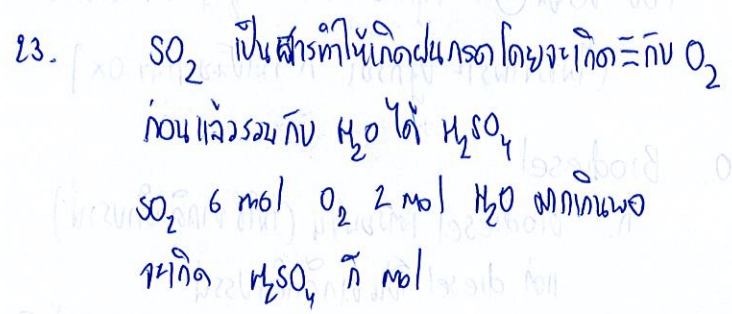 23. SO₂ เป็นสารทำให้เกิดฝนกรด โดยจะเกิด ΞกับO₂
ก่อนแล้วรวมกับ H₂O ได้ H₂SO₄
SO₂ 6 mol O₂ 2 mol H₂O มากเกินพอ
จะเกิด H₂SO₄ กี่ mol